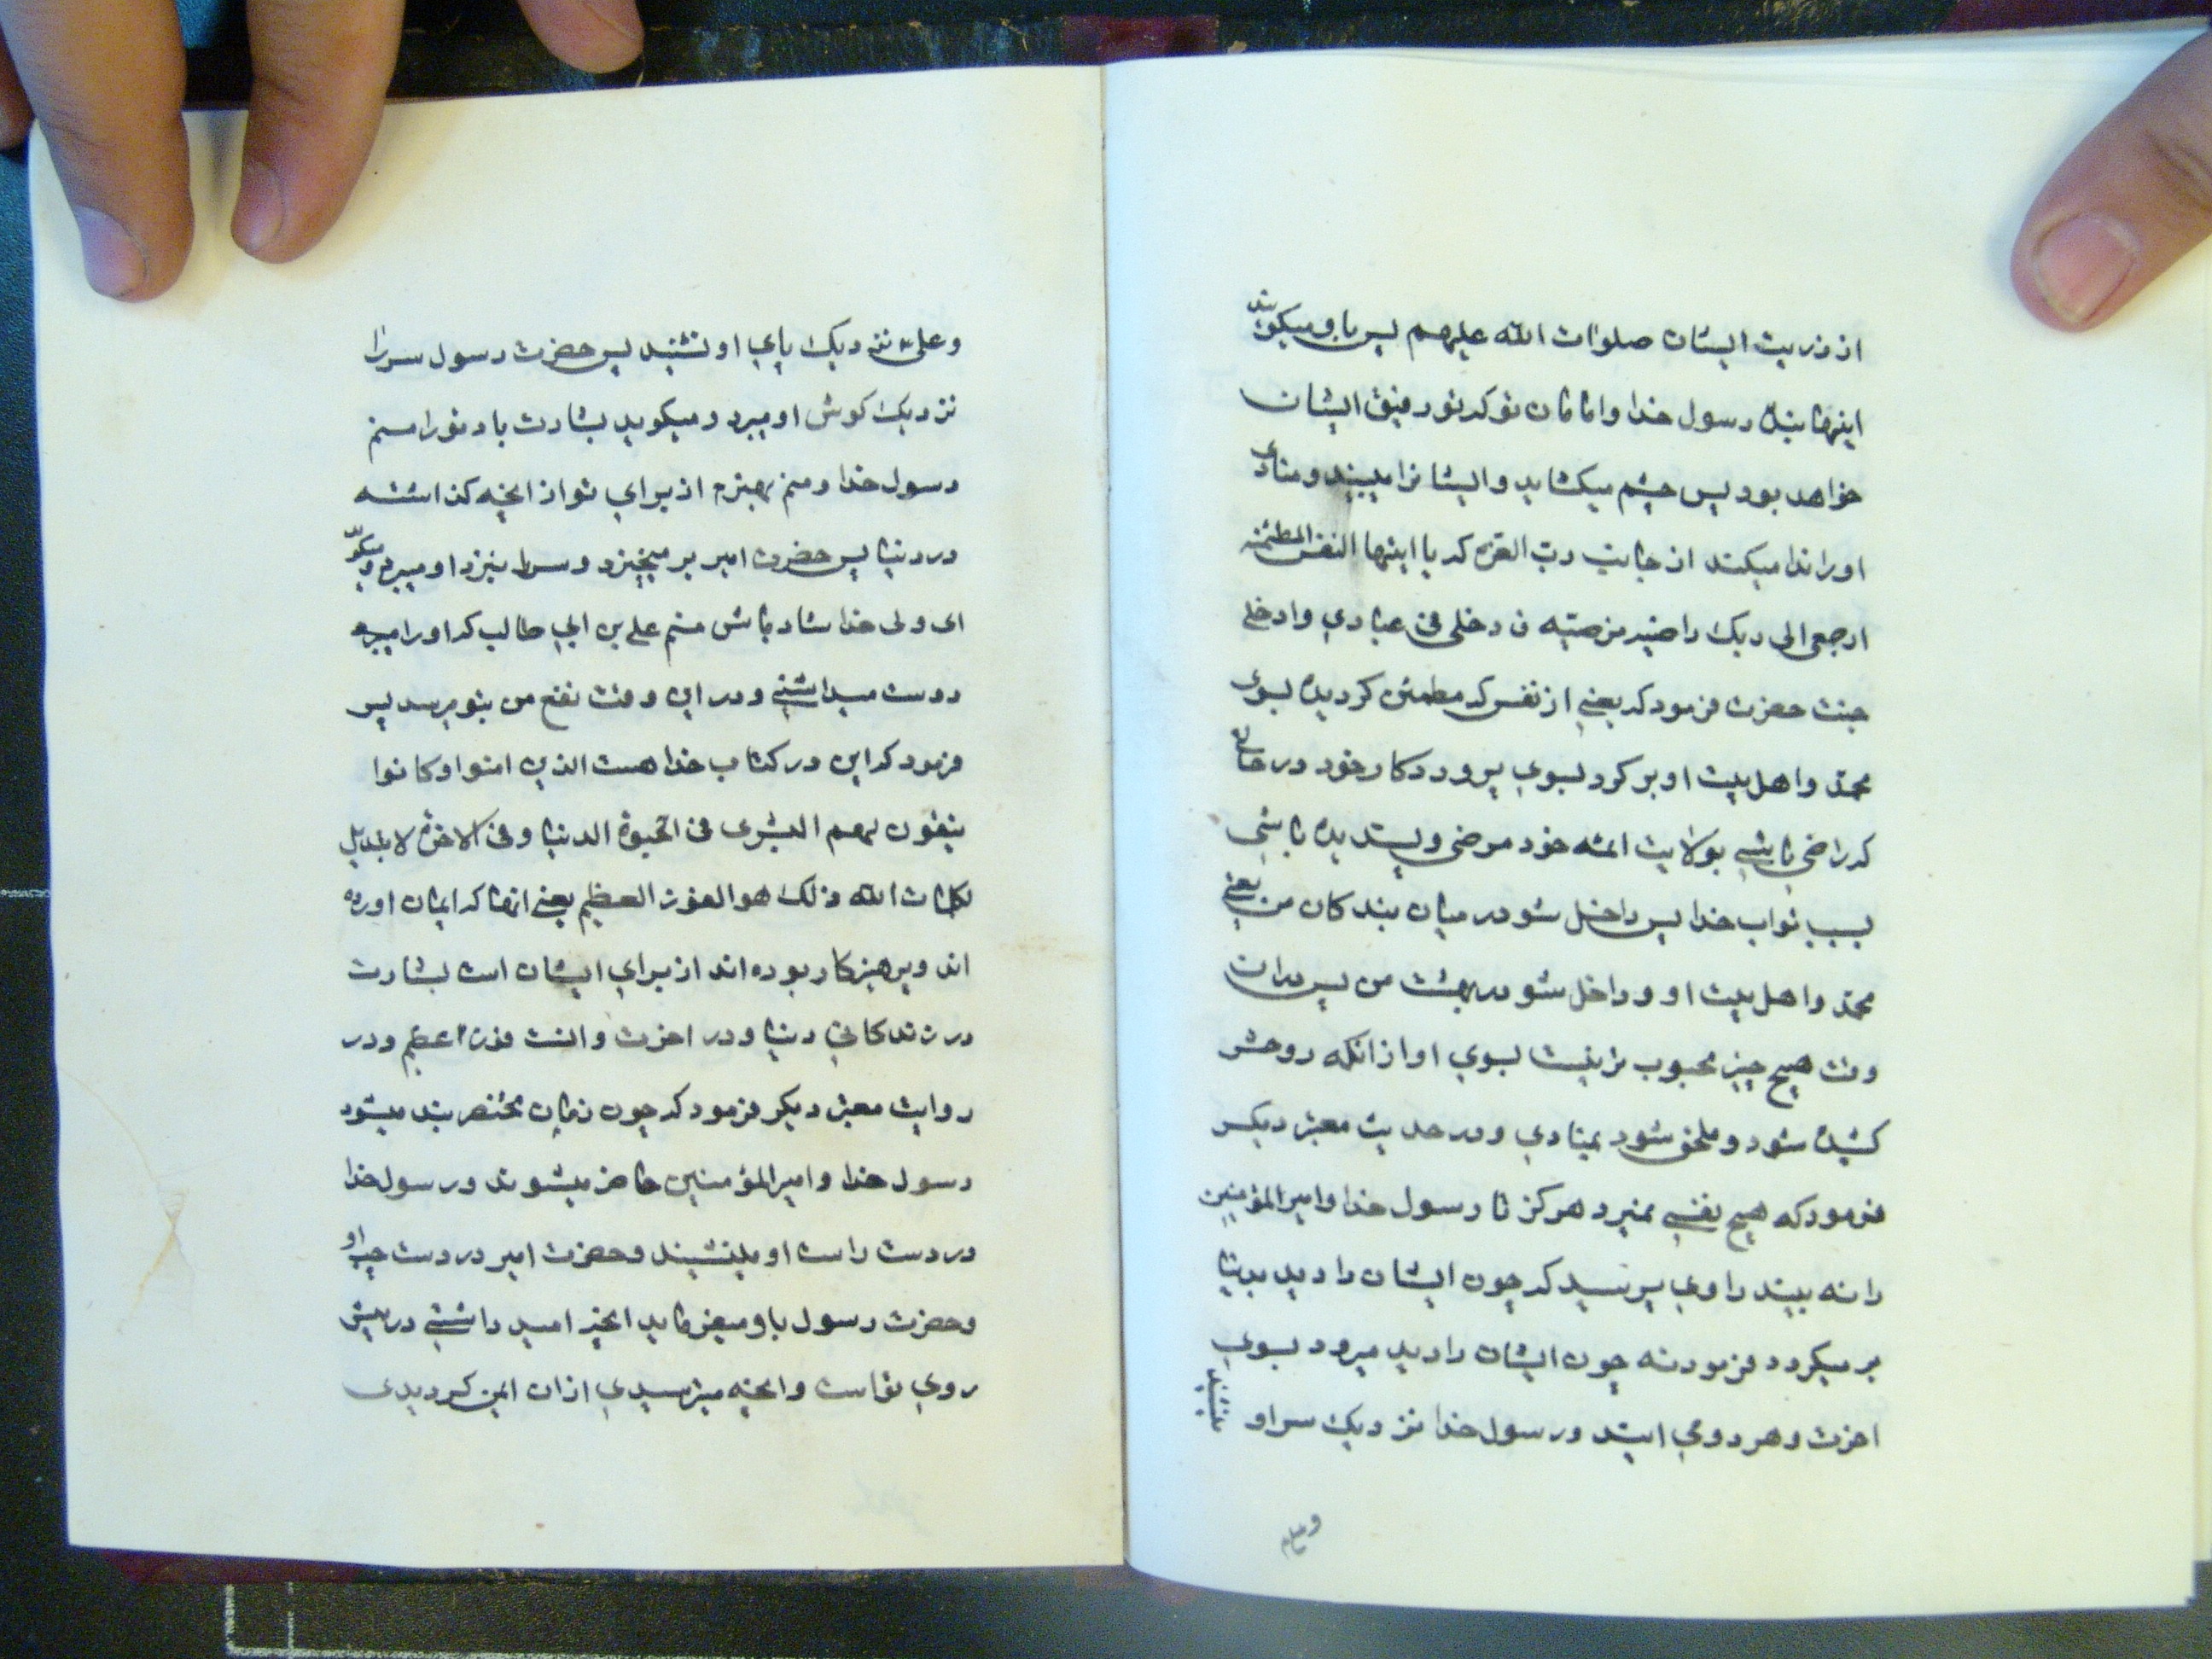 از ذریت ایشان صلوات الله علیهم پس باو میکویند
اینها یند رسول خدا و امامان تو که تو رفیق ایشان
خواهد بود پس چشم میکشاید و ایشانرا میبیند و منادی
او را ندا میکند از جانب رب العزه که یا ایتها النفس المطمئنه
ارجعی الی ربک راضیه مرضیه فادخلی فی عبادی وادخلی
جنت حضرت فرمود که یعنی ای نفس که مطمئن کردیده بسوی
محمد و اهل بیت او بر کرد بسوی پروردکار خود در حالی
که راضی باشی بولایت ائمه خود مرضی و پسندیده باشی
بسبب ثواب خدا پس داخل شو در میان بندکان من یعنی
محمد و اهل بیت او و داخل شو در بهشت من پس دران
وقت هیچ چیز محبوب تر نیست بسوی او از انکه روحش
کشیده شود و ملحق شود بمنادی و در حدیث معتبر دیکر
فرمود که هیچ نفسی نمیرد هرکز تا رسول خدا و امیرالمؤمنین
را نه بیند راوی پرسید که چون ایشان را دید بدنیا
بر میکردد فرمود نه چون ایشان را دید میرود بسوی
اخرت و هر دو می ایند و رسول خدا نزدیک سر او بنشیند
و علی
و علی نزدیک پای او نشیند پس حضرت رسول سر را
نزدیک کوش او میبرد و میکوید بشارت باد تو را منم
رسول خدا و منم بهترم از برای تو از انچه کذاشته
در دنیا پس حضرت امیر بر میخیزد و سر را نیزد او میبرد و میکوید
ای ولی خدا شاد باش منم علی بن ابی طالب که او را
دوست میداشتی و در این وقت نفع من بتو میرسد پس
فرمود که این در کتاب خدا هست الذین امنوا و کانوا
یتقون لهم البشری فی الحیوة الدنیا و فی الاخرة لا تبدیل
لکلمات الله ذلک هو الفوز العظیم یعنی انها که ایمان اورده
اند و پرهیزکار بوده اند از برای ایشان است بشارت
در زندکانی دنیا و در اخرت و انست فوز اعظیم و در
روایت معتبر دیکر فرمود که چون زبان محتضر بند میشود
رسول خدا و امیرالمؤمنین حاضر میشوند و رسول خدا
در دست راست او مینشیند و حضرت امیر در دست چپ او
و حضرت رسول باو میفرماید انچه امید داشتی در پیش
روی تو است و انچه میترسیدی ازان ایمن کردیدی